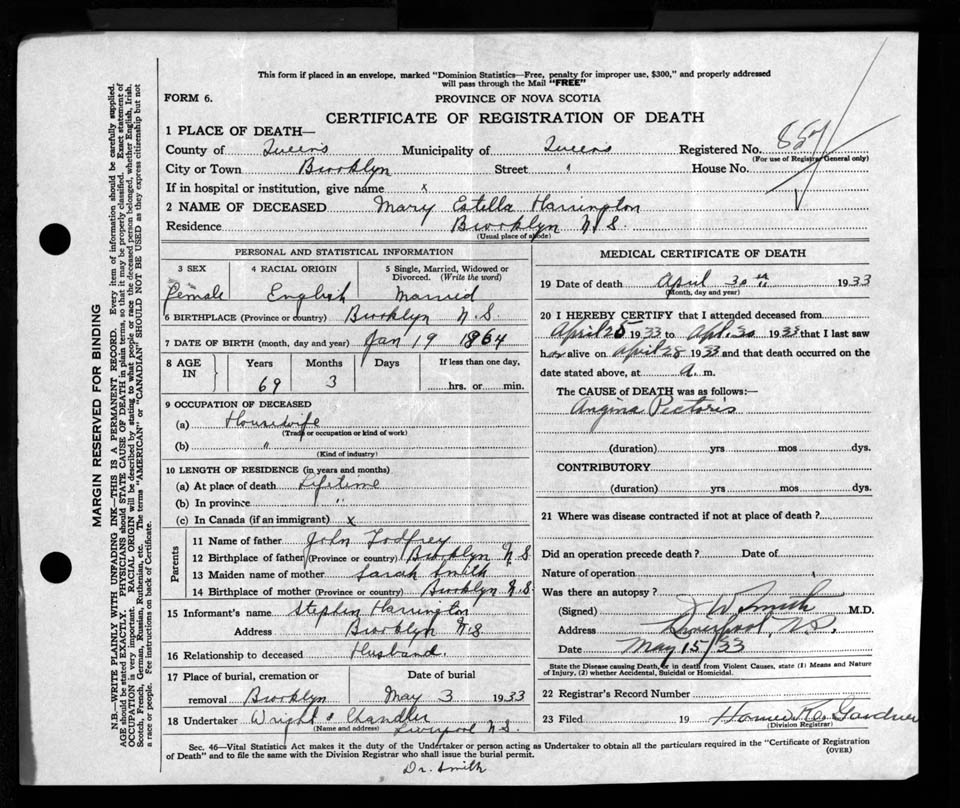 This form if placed in an envelope, marked "Dominion Statistics—Free, penalty for improper use, $300," and properly addressed
will pass through the Mail "FREE"
FORM 6.
PROVINCE OF NOVA SCOTIA
CERTIFICATE OF REGISTRATION OF DEATH
1 PLACE OF DEATH—
County of Queens Municipality of Queens Registered No.
(For use of Registrar General only)
City or Town Brooklyn Street " House No.
If in hospital or institution, give name x
2 NAME OF DECEASED Mary Estella Harrington
Residence Brooklyn N.S.
(Usual place of abode)
PERSONAL AND STATISTICAL INFORMATION
3 SEX 4 RACIAL ORIGIN 5 Single, Married, Widowed or
Divorced. (Write the word)
Female English Married
6 BIRTHPLACE (Province or country) Brooklyn N.S.
7 DATE OF BIRTH (month, day and year) Jan 19 1864
8 AGE IN Years Months Days If less than one day,
69 3 hrs. or min.
9 OCCUPATION OF DECEASED
(a) Housewife
(Trade or occupation or kind of work)
(b) "
(Kind of industry)
10 LENGTH OF RESIDENCE (in years and months)
(a) At place of death Lifetime
(b) In province "
(c) In Canada (if an immigrant) x
Parents
11 Name of father John Godfrey
12 Birthplace of father (Province or country) Brooklyn N.S.
13 Maiden name of mother Sarah Smith
14 Birthplace of mother (Province or country) Brooklyn N.S.
15 Informant's name Stephen Harrington
Address Brooklyn N.S.
16 Relationship to deceased Husband.
17 Place of burial, cremation or Date of burial
removal Brooklyn May 3 1933
18 Undertaker Wright & Chandler
(Name and address) Liverpool N.S.
MEDICAL CERTIFICATE OF DEATH
19 Date of death April 30th 1933
(Month, day and year)
20 I HEREBY CERTIFY that I attended deceased from
April 25 1933 to Apl. 30 1933 that I last saw
h alive on April 28 1933 and that death occurred on the
date stated above, at a. m.
The CAUSE OF DEATH was as follows:—
Angina Pectoris
(duration) yrs mos dys.
CONTRIBUTORY
(duration) yrs. mos. dys.
21 Where was disease contracted if not at place of death?
Did an operation precede death? Date of
Nature of operation
Was there an autopsy?
(Signed) J W Smith M.D.
Address Liverpool, N.S.
Date May 15/33
State the Disease causing Death, or in death from Violent Causes, state (1) Means and Nature
of Injury, (2) whether Accidental, Suicidal or Homicidal.
22 Registrar's Record Number
23 Filed 19 Gardner
(Division Registrar)
Sec. 46—Vital Statistics Act makes it the duty of the Undertaker or person acting as Undertaker to obtain all the particulars required in the "Certificate of Registration
of Death" and to file the same with the Division Registrar who shall issue the burial permit. (OVER)
Dr. Smith
MARGIN RESERVED FOR BINDING
N.B.—WRITE PLAINLY WITH UNFADING INK—THIS IS A PERMANENT RECORD. Every item of information should be carefully supplied.
AGE should be stated EXACTLY. PHYSICIANS should STATE CAUSE OF DEATH in plain terms, so that it may be properly classified. Exact statement of
OCCUPATION is very important. RACIAL ORIGIN will be described by stating to what people or race the deceased person belonged, whether English, Irish,
Scotch, French, German, Russian, Ruthenian, etc. The terms "AMERICAN" or "CANADIAN" SHOULD NOT BE USED as they express citizenship but not
a race or people. Fee instructions on back of Certificate.